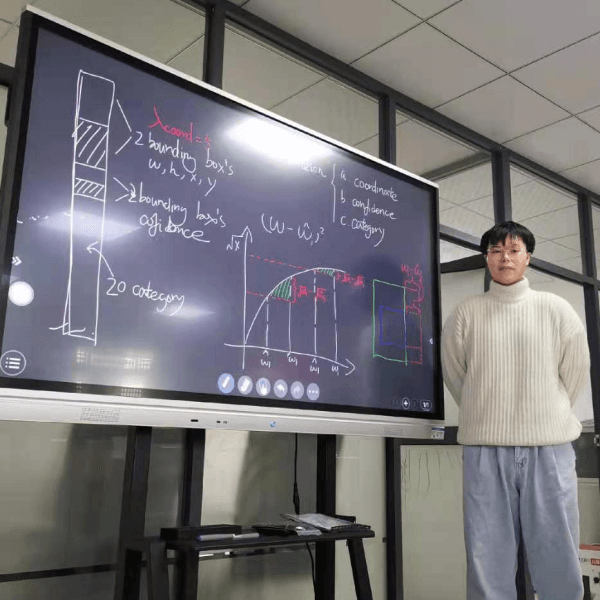 λcoord=5
2 bounding box's
w, h, x, y
2 bounding box's
cofidence
20 category
a coordinate
b confidence
c category
(w-ŵ₁)²
√x
ŵ₁ w₁ ŵ₁ w₁